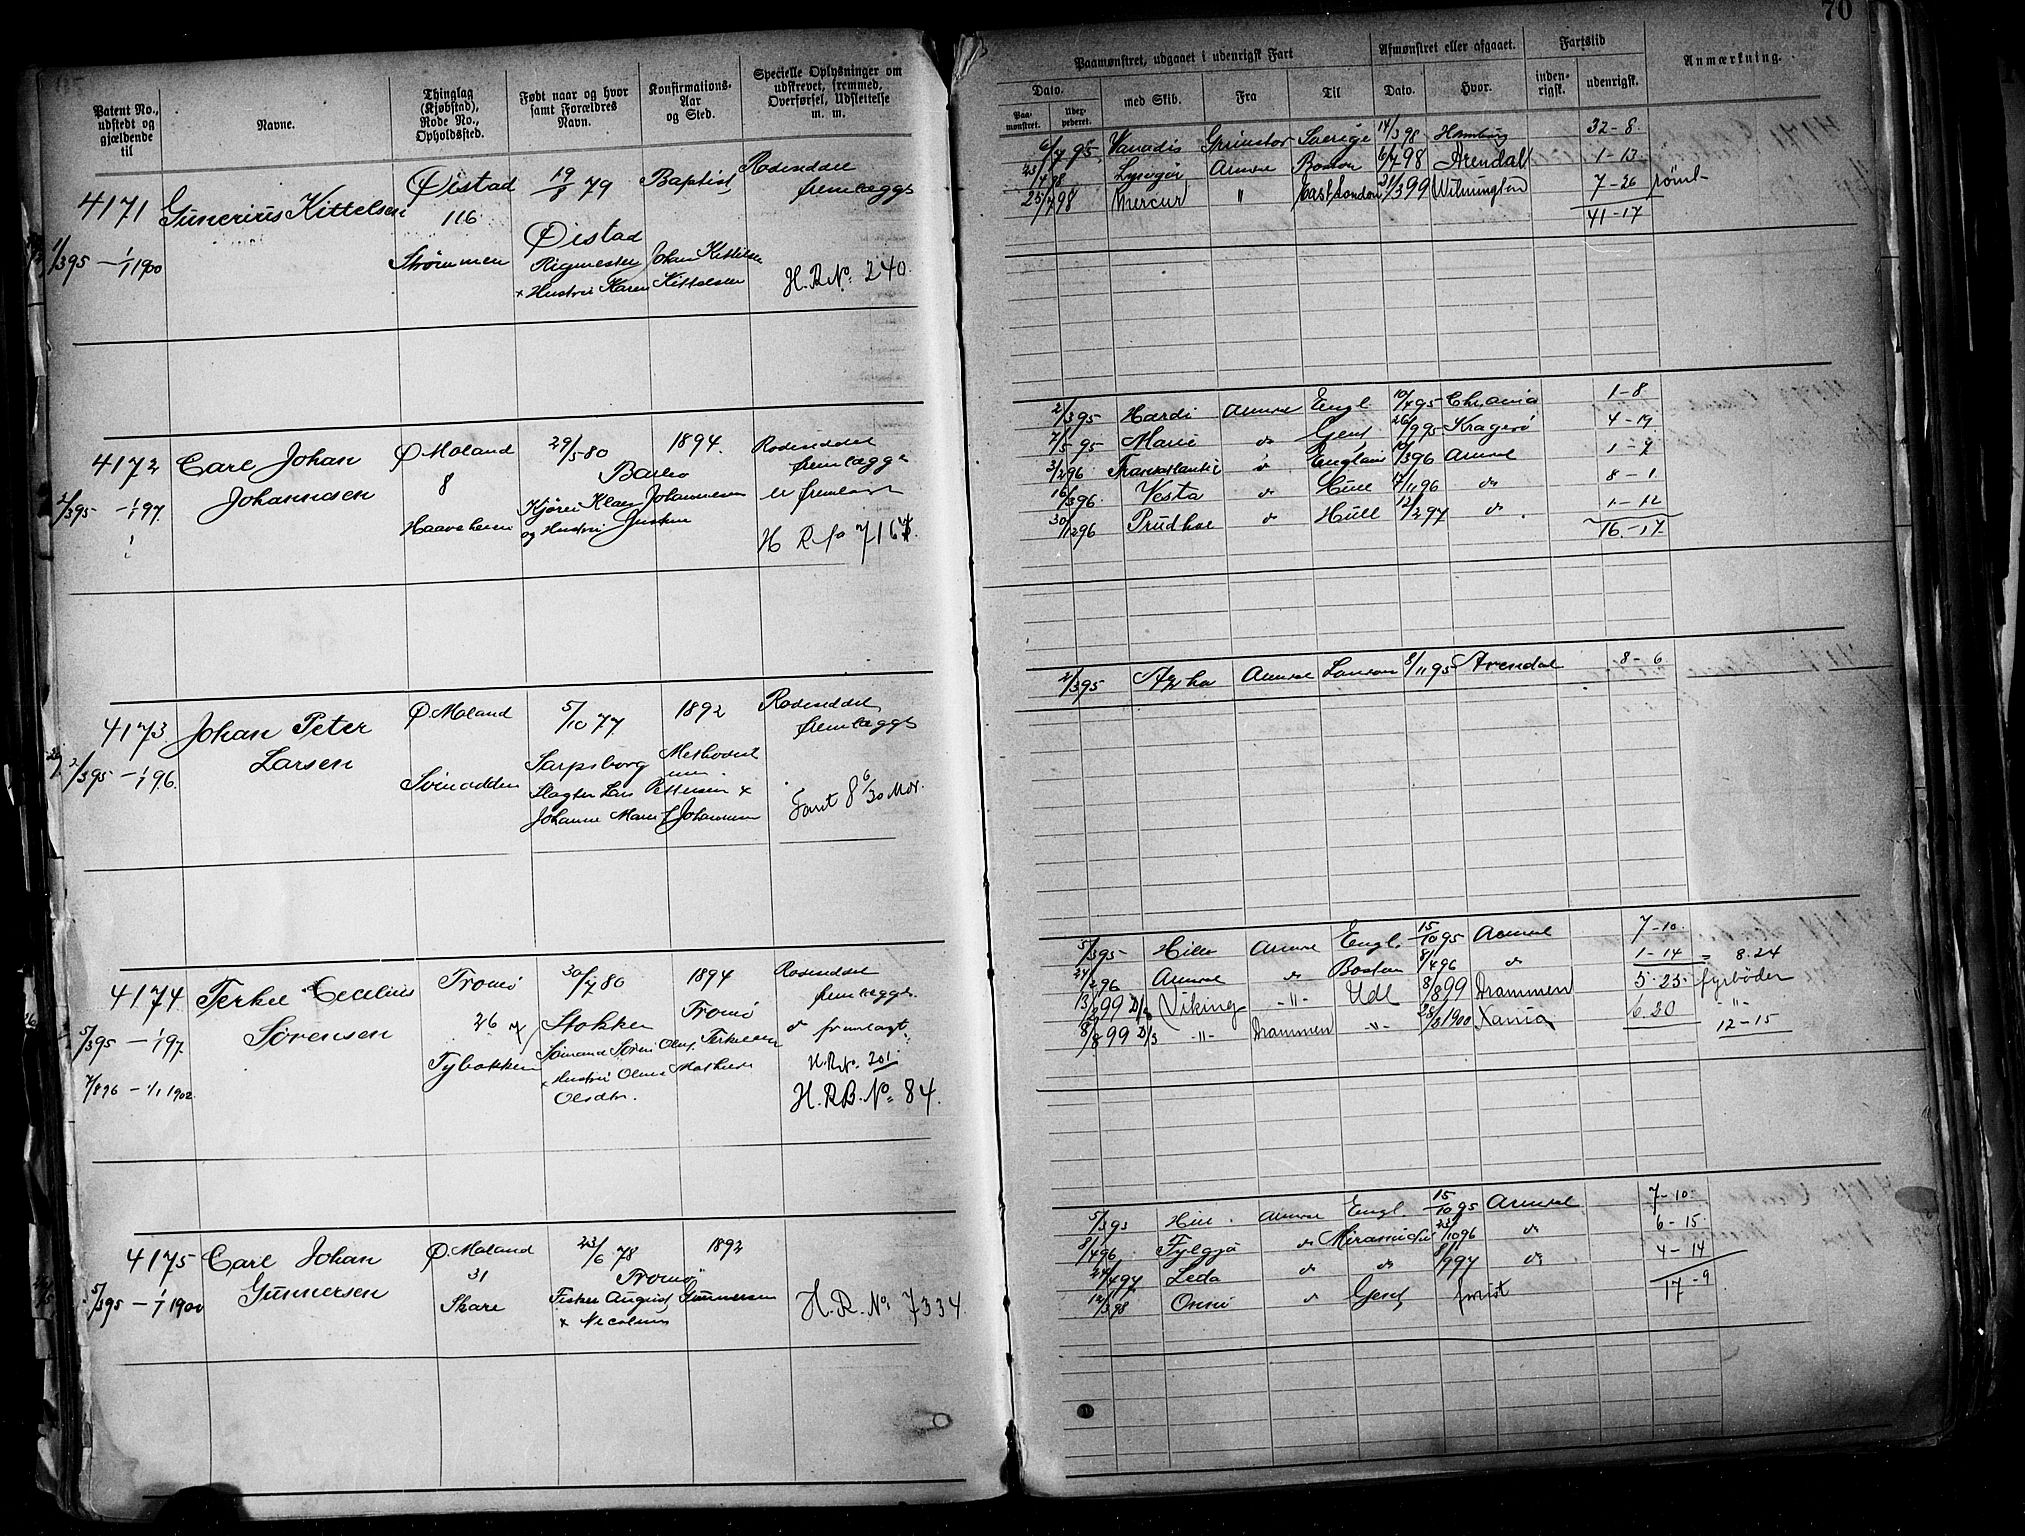 70
Patent No., udstedt og gjældende til
Navne.
Thinglag (Kjøbstad), Rode No., Opholdssted.
Født naar og hvor samt Forældres Navn.
Konfirmations-Aar og Sted.
Specielle Oplysninger om udskrevet, fremmed, Overførsel, Udslettelse m. m.
Paamønstret, udgaaet i udenrigsk Fart
Afmønstret eller afgaaet.
Fartstid
Anmærkning.
Dato.
Paamønstret.
med Skib.
Fra
Til
Dato.
Hvor.
indenrigsk.
udenrigsk.
4171 Gunerius Kittelsen Øistad 19/8 79 Baptist Rodeseddel
116 fremlægges
1/3 95 – 1/1 1900 Strømmen Øistad
Rigmester Johan Kittelsen
x Hustru Karen Kittelsen H. R. No: 240.
6/7 95 Vanadis Grimstad Sverige 14/3 98 Hamburg 32-8.
23/4 98 Lysegjør Arendal Boston 6/7 98 Arendal 1-13
25/7 98 Mercur " East London 21/3 99 Wilmington 7-26 rømt
41-17
4172 Carl Johan Johannesen Ø Moland 29/5 80 1894. Rodeseddel
8 Barbo fremlægges
2/3 95 – 1/1 97. Haaveheien er fremlagt
og Hustru
H R fo 7167.
2/3 95 Hardi Arendal Engl 10/4 95 Chrania 1-8
7/5 95 Marie do Gent 26/9 95 Kragerø 4-19
3/2 96 Transatlantic do England 10/3 96 Arendal 1-7
16/3 96 Vesta do Hull 17/11 96 do 8-1
30/12 96 Prudhoe do Hull 12/2 97 do 1-12
16-17
4173 Johan Peter Larsen Ø Moland 5/10 77 1892 Rodeseddel
fremlægges
2/3 95 – 1/1 96. Songodden Sarpsborg Methodist
Slagter Lars Pettersen x
Johanne Marie f Johannesen
8 6/30 Mdr.
2/3 95 Agha Arendal London 8/11 95 Arendal 8-6
4174 Terkel Cecelius Sørensen Tromø 30/7 80 1894 Rodeseddel
fremlægges
26 Stokken Tromø do fremlagt
5/3 95 – 1/1 97.
Tybakken Sømand Søren Olaus Terkelsen
x Hustru Olava Mathilde
7/8 96 – 1/1 1902. Olsdtr.
H. R. No. 201
H. R. B. No. 84.
5/3 95 Hilda Arendal Engl. 15/10 95 Arendal 7-10
24/2 96 Arendal do Boston 8/4 96 do 1-14 = 8.24
13/2 99 D/S Viking -"- Udl 8/8 99 Drammen 5.25 fyrbøder
8/8 99 D/S -"- Drammen -"- 28/2 1900 Xania 6.20 -"-
12-15
4175 Carl Johan Gunnersen Ø Moland 23/6 78 1892
31 Tromø
5/3 95 – 1/1 1900 Skare Fisker August Gunnersen
x Nicoline
H. R. No: 7334
5/3 95 Arendal Engl. 15/10 95 Arendal 7-10
8/4 96 Fylgja do Miramichi 23/10 96 do 6-15
24/4 97 Leda do do 8/9 97 do 4-14
12/3 98 Onni do Gent forlist
17-9